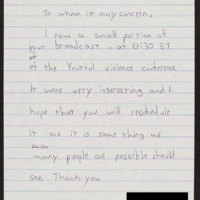 To whom it may concern,
I saw a small portion of
your broadcast, at 10:30 ET.
of the Youtful violence conference
It was very interesting and I
hope that you will reschedule
it as it is something as
many people as possible should
see. Thank you